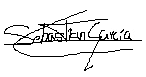 Sebastian Garcia